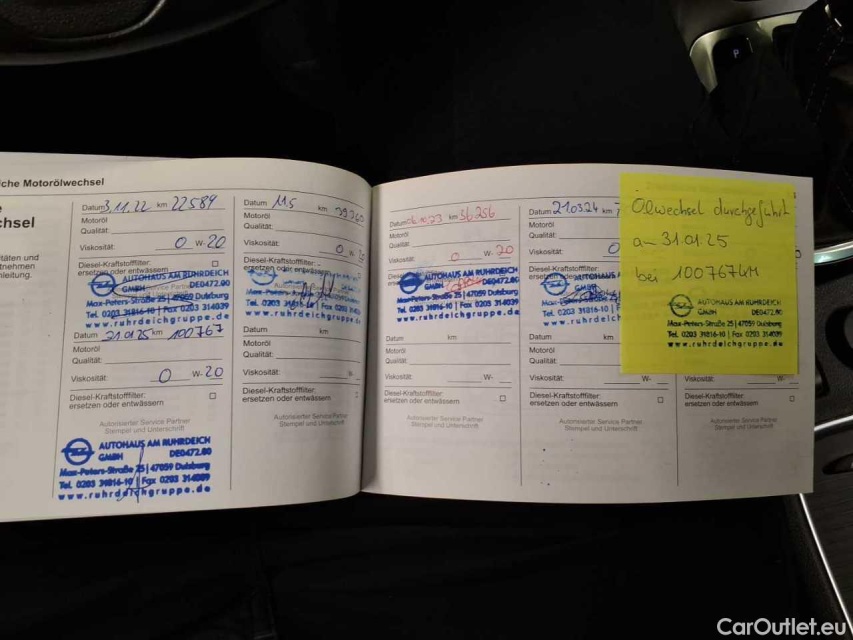 iche Motorölwechsel
chsel
itäten und
nehmen
leitung.
Datum 3.11.22 km 22589
Motoröl
Qualität:
Viskosität: 0 W-20
Diesel-Kraftstofffilter:
ersetzen oder entwässern
AUTOHAUS AM RUHRDEICH
GMBH DE0472.80
Max-Peters-Straße 25 | 47059 Duisburg
Tel. 0203 31816-10 | Fax 0203 314039
www.ruhrdeichgruppe.de
Datum 31.01.25 km 100767
Motoröl
Qualität:
Viskosität: 0 W-20
Diesel-Kraftstofffilter:
ersetzen oder entwässern
Autorisierter Service Partner
Stempel und Unterschrift
AUTOHAUS AM RUHRDEICH
GMBH DE0472.80
Max-Peters-Straße 25 | 47059 Duisburg
Tel. 0203 31816-10 | Fax 0203 314039
www.ruhrdeichgruppe.de
Datum km
Motoröl
Qualität:
Viskosität: 0 W-
Diesel-Kraftstofffilter:
ersetzen oder entwässern
Datum km
Motoröl
Qualität:
Viskosität:
Diesel-Kraftstofffilter:
ersetzen oder entwässern
Autorisierter Service Partner
Stempel und Unterschrift
Datum km 56256
Motoröl
Qualität:
Viskosität: 0 W-20
Diesel-Kraftstofffilter:
AUTOHAUS AM RUHRDEICH
GMBH DE0472.80
Max-Peters-Straße 25 | 47059 Duisburg
Tel. 0203 31816-10 | Fax 0203 314039
www.ruhrdeichgruppe.de
Datum km
Motoröl
Qualität:
Viskosität: W-
Diesel-Kraftstofffilter:
ersetzen oder entwässern
Autorisierter Service Partner
Stempel und Unterschrift
Datum 21.03.24 km
Motoröl
Qualität:
Viskosität: 0
AUTOHAUS AM
GMBH
Max-Peters-Straße
Tel. 0203 31816-10 | F
www.ruhrdeichg
Datum km
Motoröl
Qualität:
Viskosität: W-
Diesel-Kraftstofffilter:
ersetzen oder entwässern
Autorisierter Service Partner
Stempel und Unterschrift
Ölwechsel durchgeführt
am 31.01.25
bei 100767 km
AUTOHAUS AM RUHRDEICH
GMBH DE0472.80
Max-Peters-Straße 25 | 47059 Duisburg
Tel. 0203 31816-10 | Fax 0203 314039
www.ruhrdeichgruppe.de
Viskosität: W-
Diesel-Kraftstofffilter:
ersetzen oder entwässern
Autorisierter Service Partner
Stempel und Unterschrift
P
CarOutlet.eu